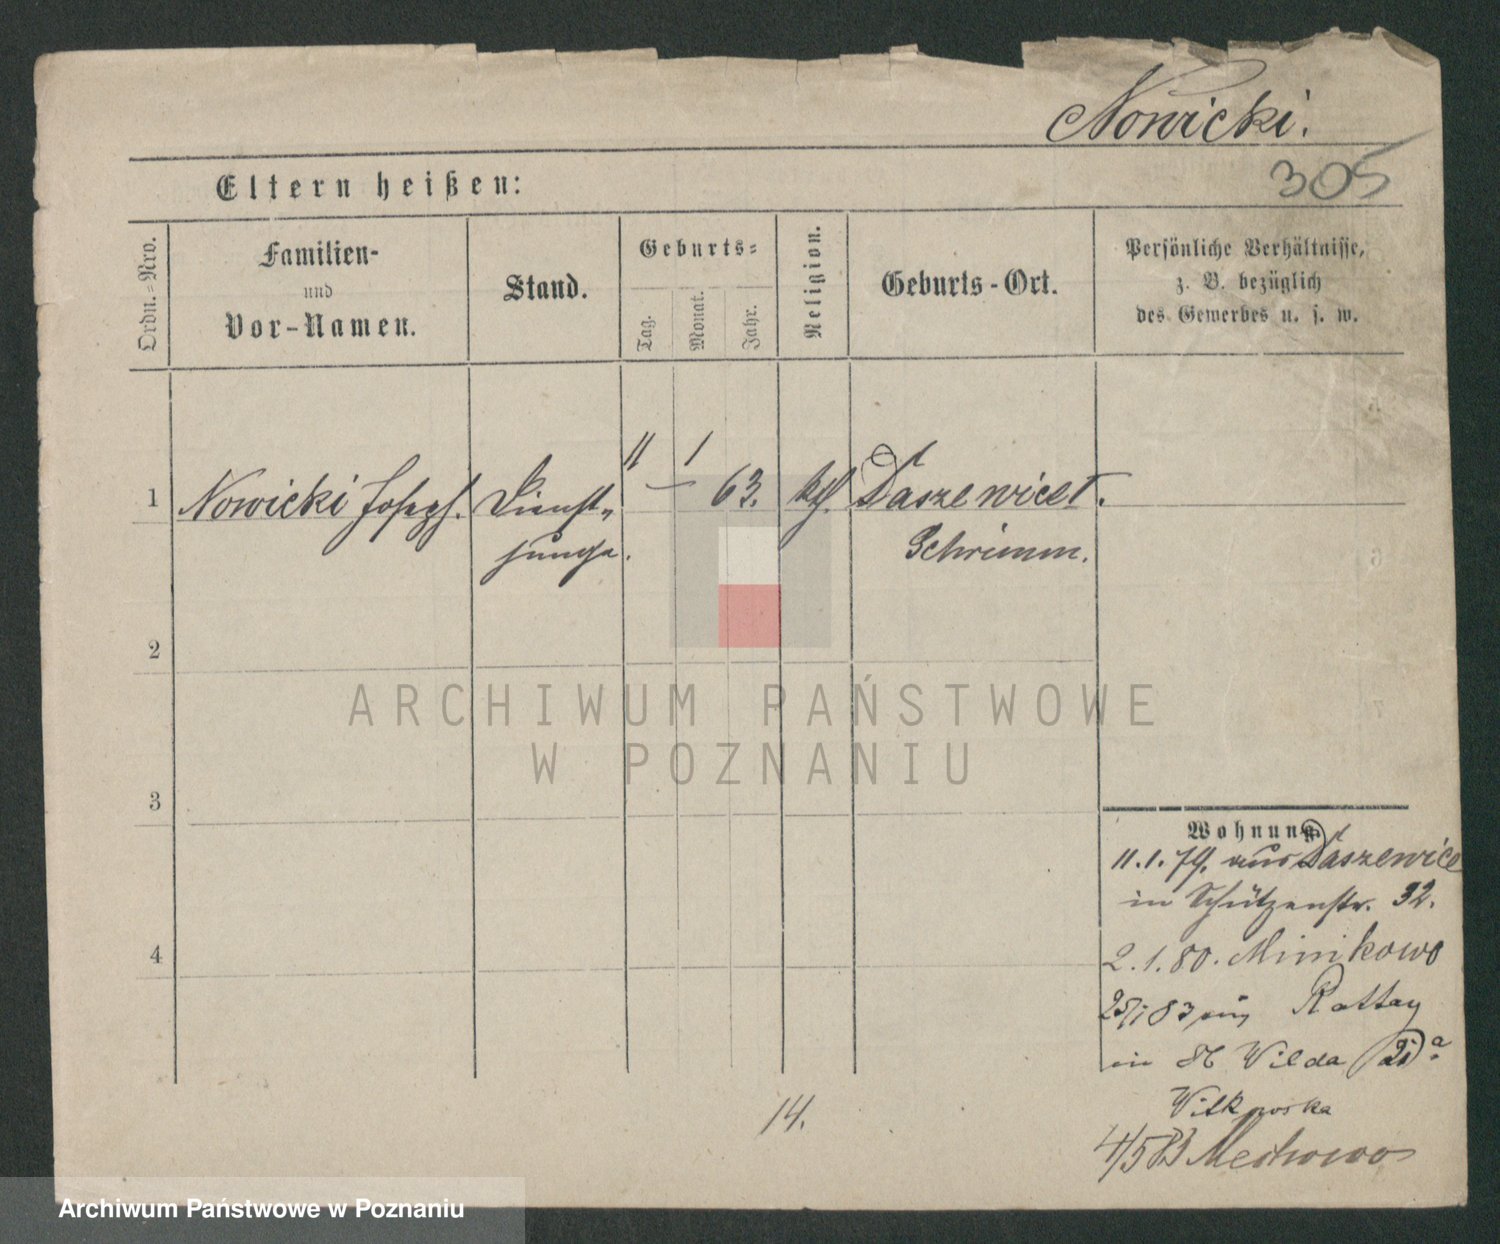 Nowicki.
305
Eltern heißen:
Ordn.-Nro.
Familien-
und
Vor-Namen.
Stand.
Geburts-
Tag.
Monat.
Jahr.
Religion.
Geburts-Ort.
Persönliche Verhältnisse,
z. B. bezüglich
des Gewerbes u. s. w.
11 1
1 Nowicki Joseph. Dienst- — 63. kth. Daszewice
junge. Schrimm.
2
3
4
Wohnung.
11.1.79. aus Daszewice
in Schützenstr. 32.
2.1.80. Minikowo
25/1 83 aus Rattay
in St Wilda
Witkowska
4/5 83 Mechowo
14.
ARCHIWUM PAŃSTWOWE
W POZNANIU
Archiwum Państwowe w Poznaniu